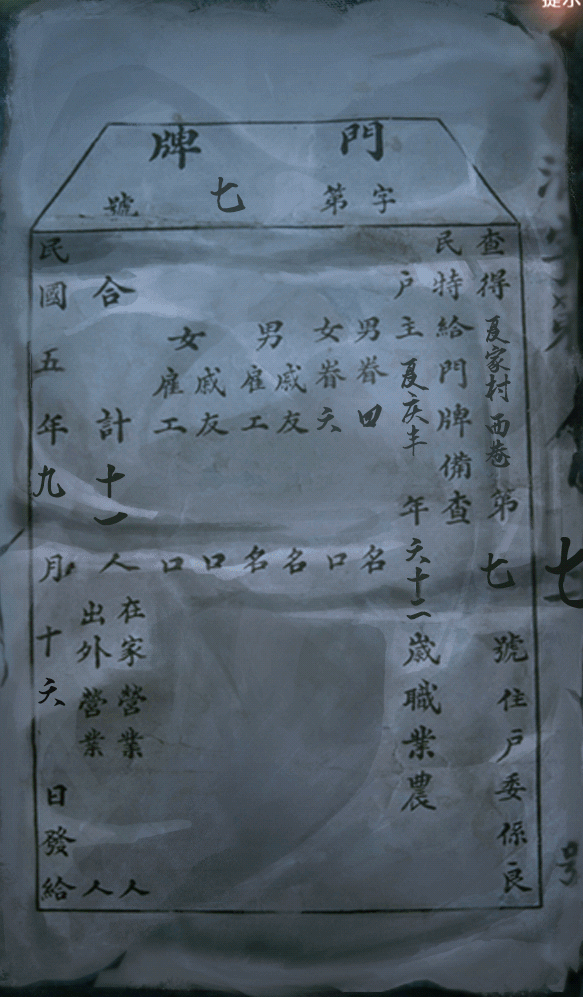 提示
門牌
字第七號
查得夏家村西巷第七號住戶委係良
民特給門牌備查
户主夏庆丰年六十二歲職業農
男眷四名
女眷六口
男
戚友名
雇工名
女
戚友口
雇工口
合計十一人
在家營業人
出外營業人
民國五年九月十六日發給
七
号